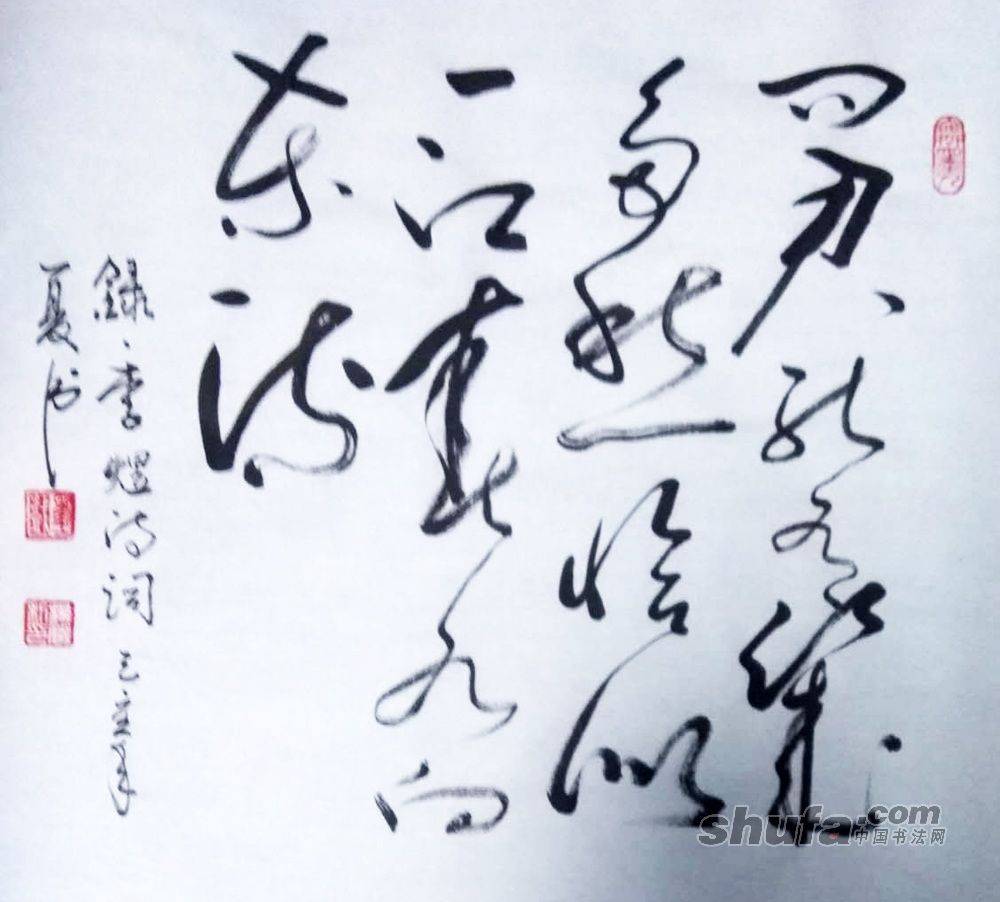 問君能有幾
多愁恰似
一江春水向
东流
録李煜诗词
夏
shufa.com
中国书法网